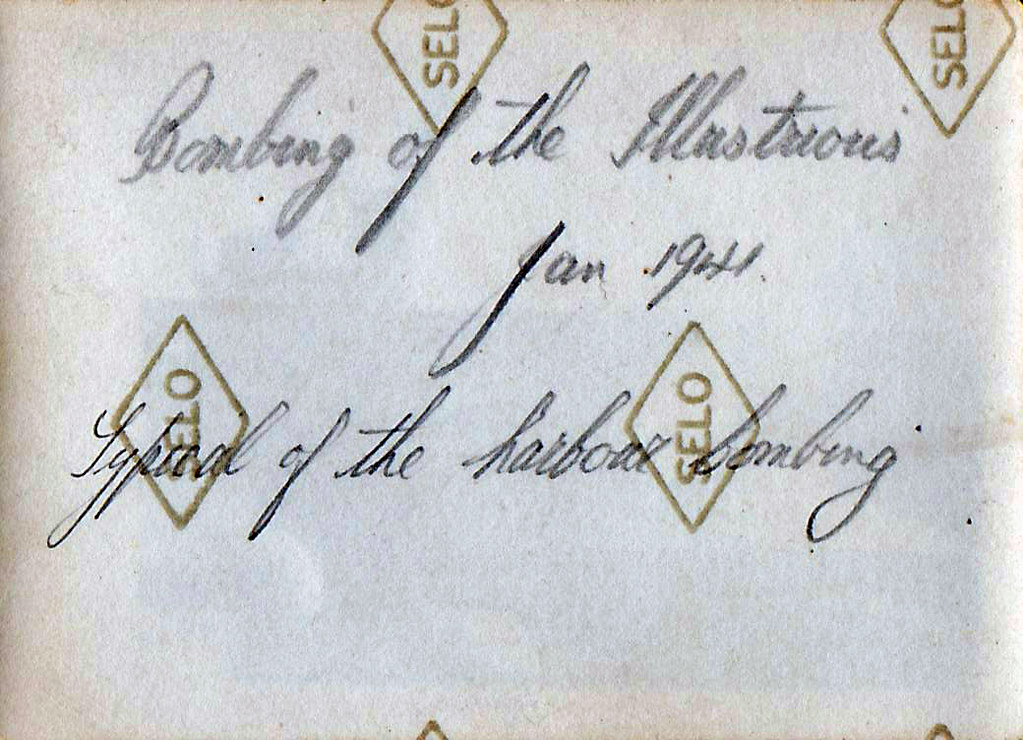 SELO SELO
Bombing of the Illustrious
Jan 1941.
SELO SELO
Typical of the harbour bombing